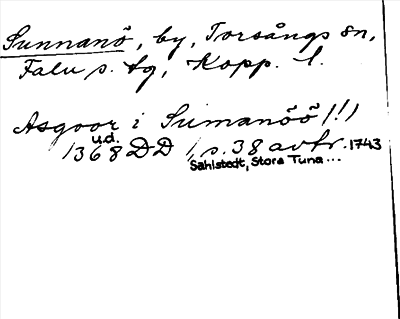 Sunnanö, by, Torsångs sn,
Falu s. tg, Kopp. l.
Asgoor i Sumanöö (!)
u.d.
1368 DD 1, s. 38 avtr. 1743
Sahlstedt, Stora Tuna ...